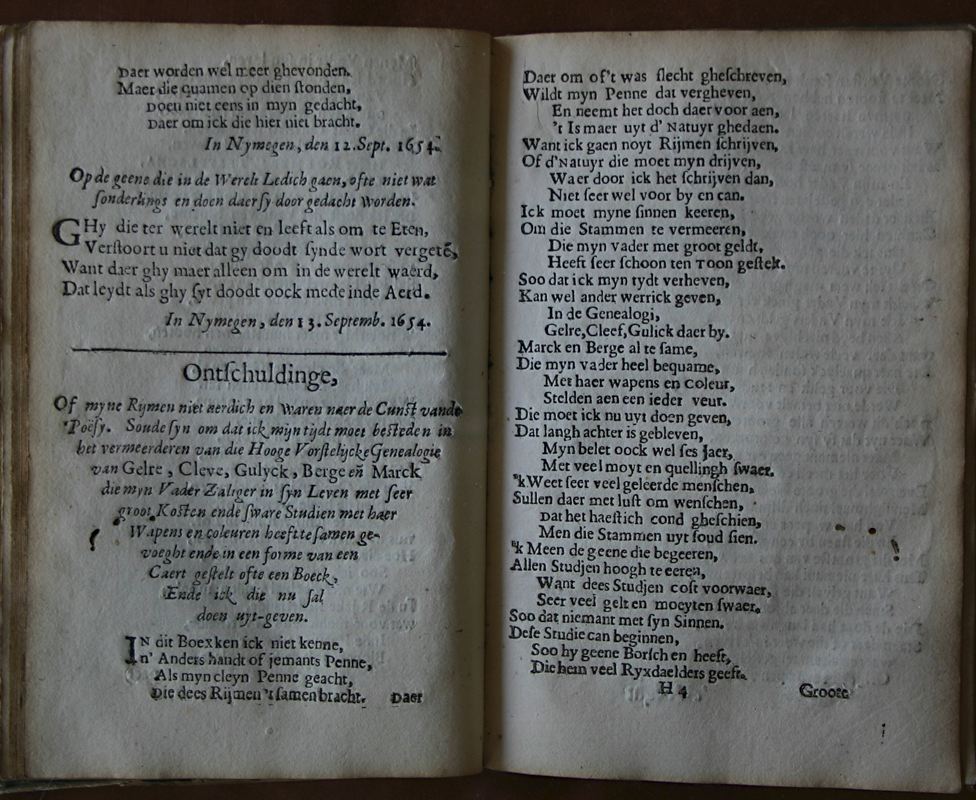 Daer worden wel meer ghevonden.
Maer die quamen op dien ſtonden,
Doen niet eens in myn gedacht,
Daer om ick die hier niet bracht.
In Nymegen, den 12. Sept. 1654.
Op de geene die in de Werelt Ledich gaen, ofte niet wat
ſonderlings en doen daer ſy door gedacht worden.
GHy die ter werelt niet en leeft als om te Eten,
Verſtoort u niet dat gy doodt ſynde wort vergetẽ,
Want daer ghy maer alleen om in de werelt waerd,
Dat leydt als ghy ſyt doodt oock mede inde Aerd.
In Nymegen, den 13. Septemb. 1654.
Ontſchuldinge,
Of myne Rymen niet aerdich en waren naer de Cunſt vande
Poëſy. Soude ſyn om dat ick mijn tijdt moet beſteden in
het vermeerderen van die Hooge Vorſtelijcke Genealogie
van Gelre, Cleve, Gulyck, Berge eñ Marck
die myn Vader Zaliger in ſyn Leven met ſeer
groot Koſten ende ſware Studien met haer
Wapens en coleuren heeft te ſamen ge-
voeght ende in een forme van een
Caert geſtelt ofte een Boeck,
Ende ick die nu ſal
doen uyt-geven.
IN dit Boexken ick niet kenne,
In' Anders handt of jemants Penne,
Als myn cleyn Penne geacht,
Die dees Rijmen 't ſamen bracht.
Daer
Daer om of't was ſlecht gheſchreven,
Wildt myn Penne dat vergheven,
En neemt her doch daer voor aen,
't Is maer uyt d' Natuyr ghedaen.
Want ick gaen noyt Rijmen ſchrijven,
Of d'Natuyr die moet myn drijven,
Waer door ick het ſchrijven dan,
Niet ſeer wel voor by en can.
Ick moet myne ſinnen keeren,
Om die Stammen te vermeeren,
Die myn vader met groot geldt,
Heeft ſeer ſchoon ten Toon geſtelt.
Soo dat ick myn tydt verheven,
Kan wel ander werrick geven,
In de Genealogi,
Gelre, Cleef, Gulick daer by.
Marck en Berge al te ſame,
Die myn vader heel bequame,
Met haer wapens en coleur,
Stelden aen een ieder veur.
Die moet ick nu uyt doen geven,
Dat langh achter is gebleven,
Myn belet oock wel ſes Jaer,
Met veel moyt en quellingh ſwaer.
'k Weet ſeer veel geleerde menſchen,
Sullen daer met luſt om wenſchen,
Dat het haeſtich cond gheſchien,
Men die Stammen uyt ſoud ſien.
'k Meen de geene die begeeren,
Allen Studjen hoogh te eeren,
Want dees Studjen coſt voorwaer,
Seer veel gelt en moeyten ſwaer.
Soo dat niemant met ſyn Sinnen.
Deſe Studie can beginnen,
Soo hy geene Borſch en heeft,
Die hem veel Ryxdaelders geeft.
H 4
Groote